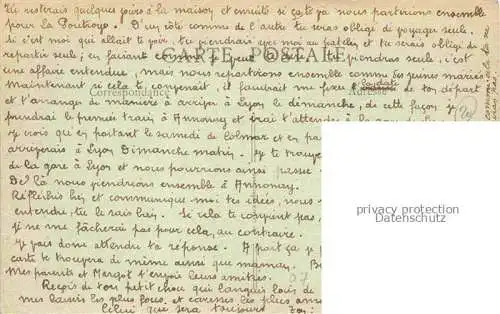 Tu resterais quelques jours à la maison et ensuite si ça te va nous partirions ensemble
pour la D'un côté comme de l'autre tu seras obligé de voyager seule.
Si c'est moi qui allait te voir, tu viendrais avec moi au patelin et tu serais obligé de
repartir seule; en faisant comme tu viendras seule, c'est
une affaire entendue, mais nous repartirions ensemble comme des jeunes mariés
CARTE POSTALE
Maintenant si cela te convenait, il faudrait me fixer de ton départ
Correspondance
Adresse
et t'arranger de manière à arriver à Lyon le dimanche, de cette façon je
prendrai le premier train à Annonay et irai t'attendre à la gare
je crois qu'en partant le samedi de Colmar et en
arriverais à Lyon Dimanche matin. je te
de la gare à Lyon et nous pourrions ainsi passer
De là nous viendrons ensemble à Annonay.
Réfléchis bien et communique moi tes idées, nous
entendu, tu le sais bien. Si cela te convient pas
je ne me fâcherai pas pour cela, au contraire.
Je vais donc attendre ta réponse. A part ça je
carte te trouvera de même ainsi que maman.
Mes parents et Margot t'envoie leurs amitiés.
Reçois de ton petit choc qui languis loin de
mes baisers les plus fous, et caresses les plus
Celui que sera toujours Ton
privacy protection
Datenschutz